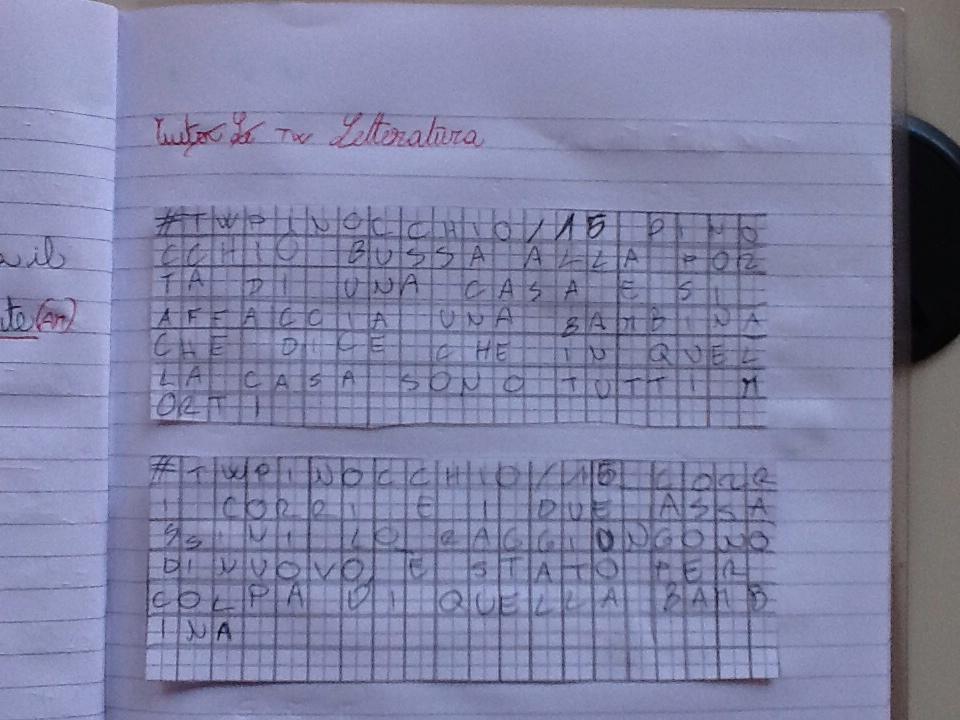 Letteratura
#TWPINOCCHIO/15 PINO
CCHIO BUSSA ALLA POR
TA DI UNA CASA E SI
AFFACCIA UNA BAMBINA
CHE DICE CHE IN QUEL
LA CASA SONO TUTTI M
ORTI
#TWPINOCCHIO/15 CORR
I CORRI E I DUE ASSA
SSINI LO RAGGIUNGONO
DI NUOVO, E STATO PER
COLPA DI QUELLA BAMB
INA